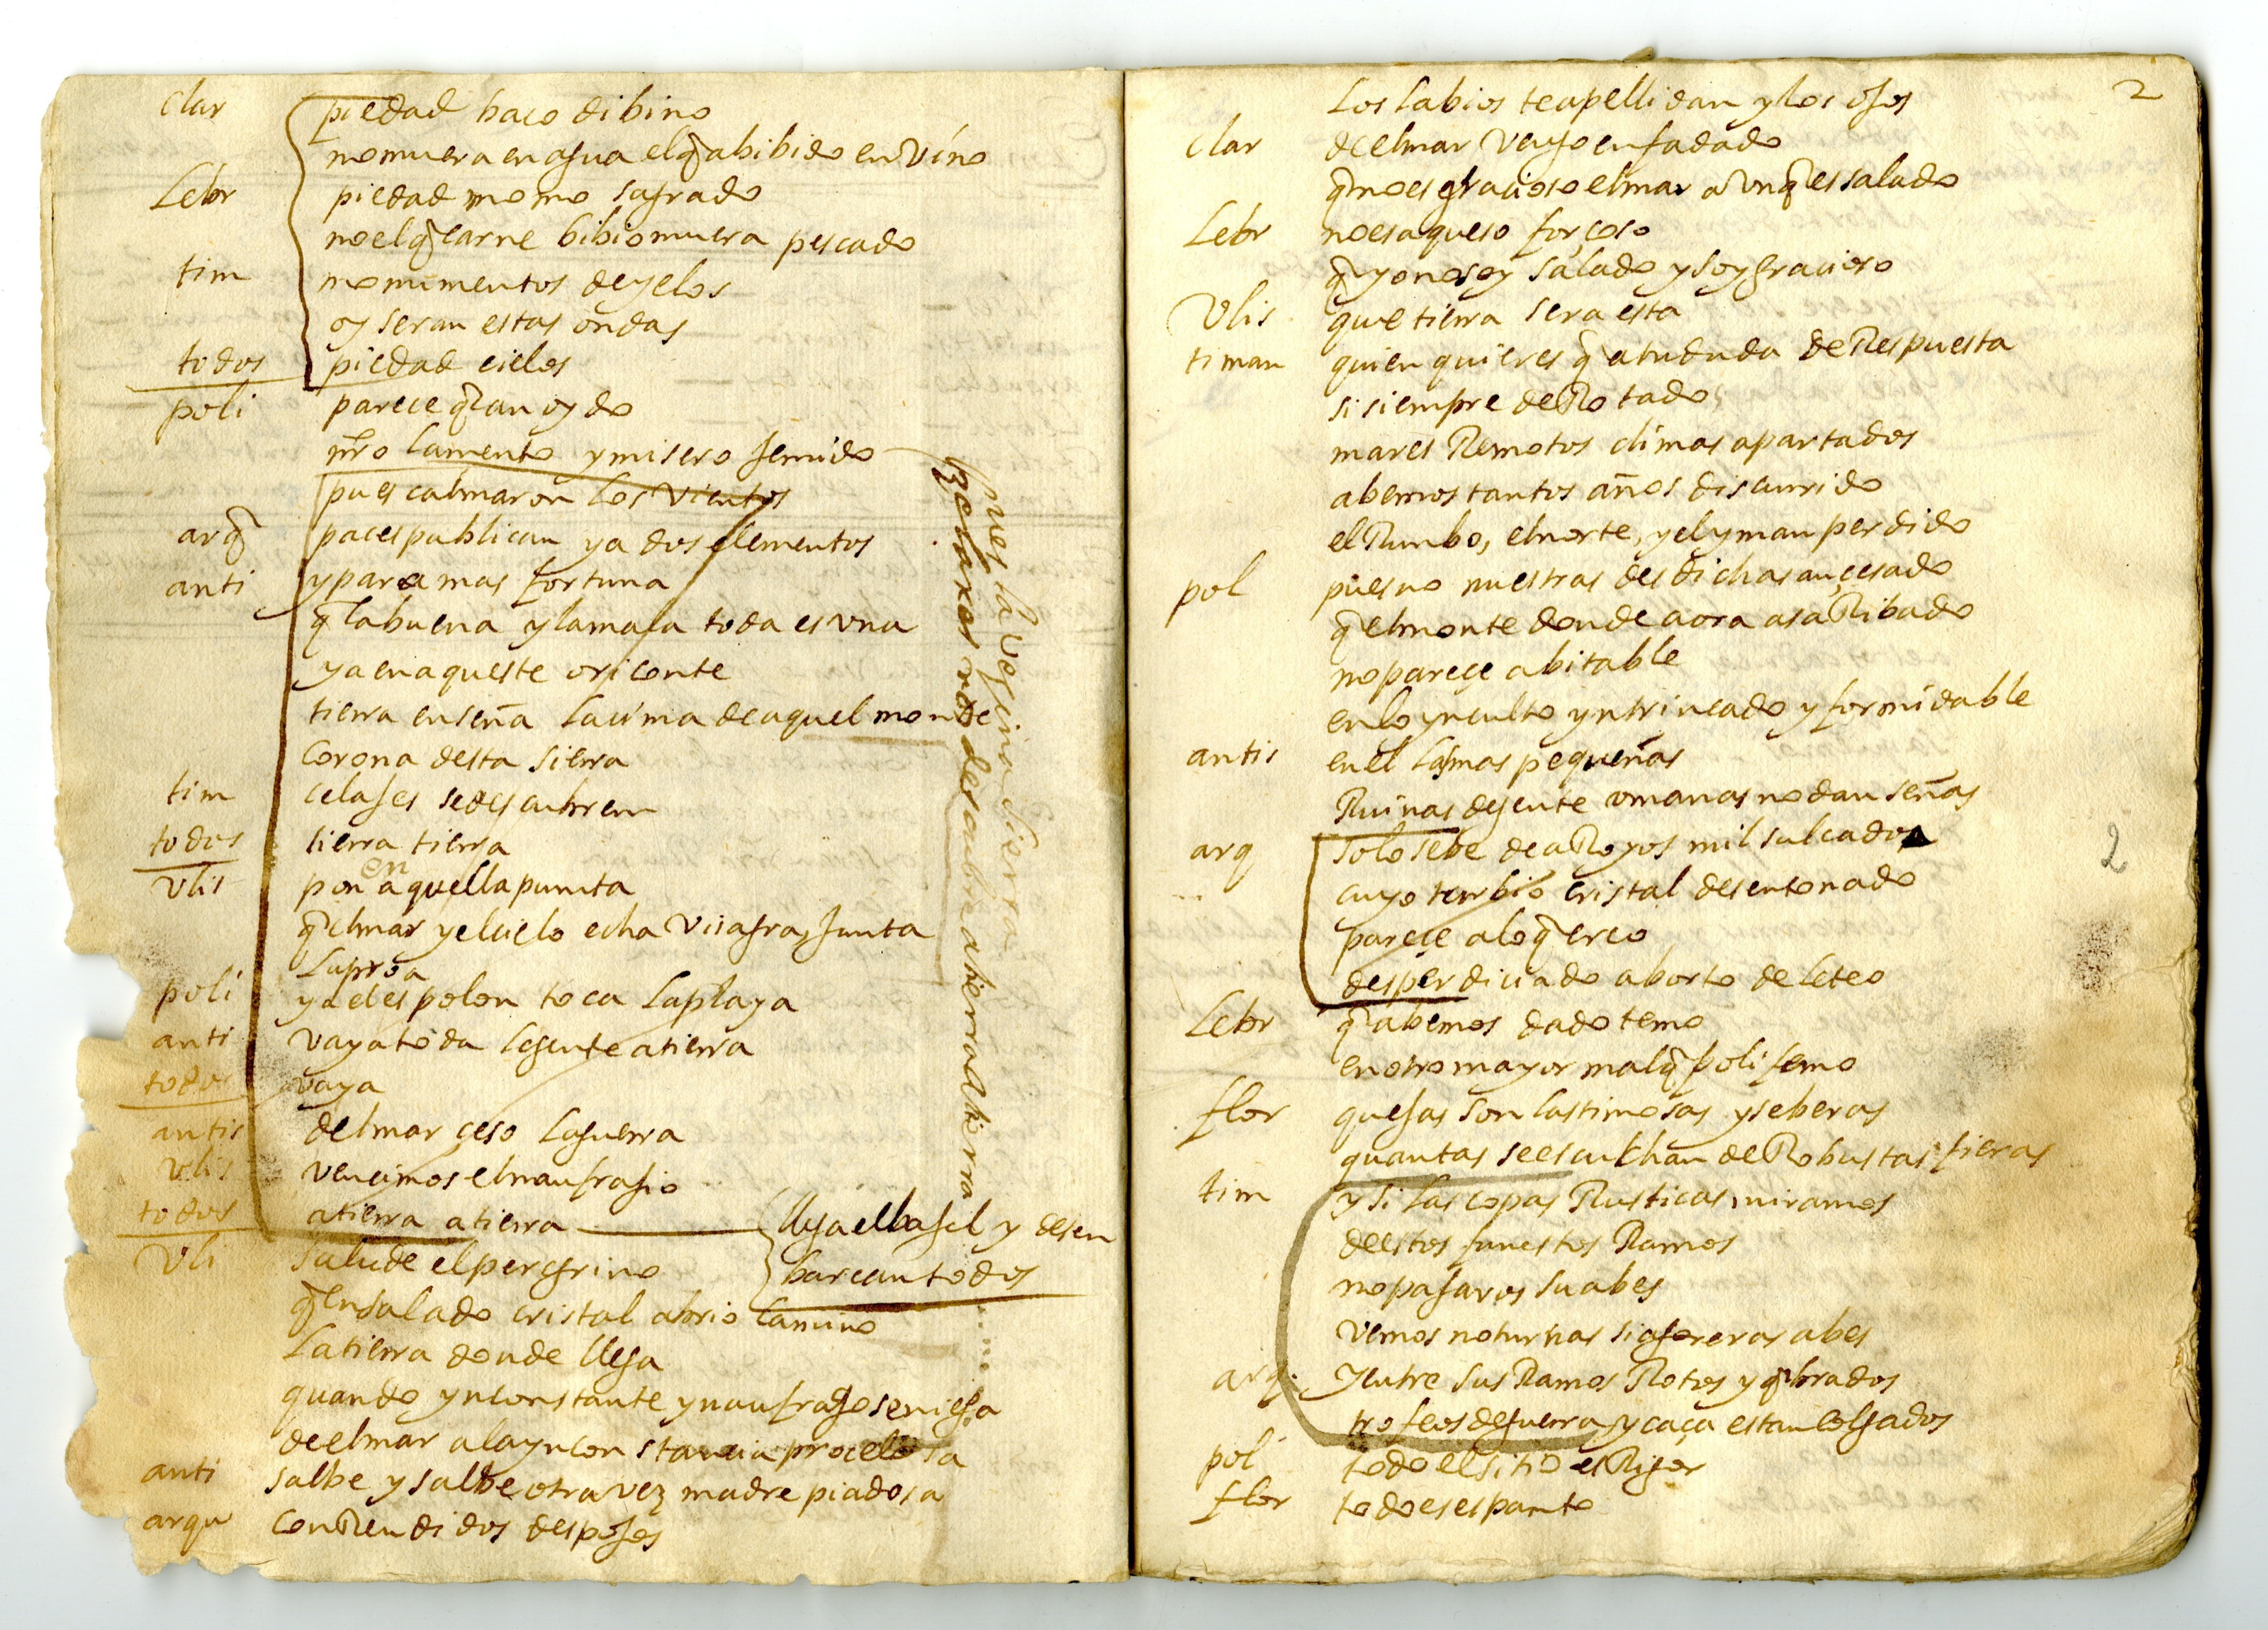 clar piedad baco dibino
no muera en agua el q̃ a bibido en Vino
Lebr piedad momo sagrado
no el q̃ carne bibio muera pescado
tim monumentos de yelos
oy seran estas ondas
todos piedad cielos
poli parece q̃ an oydo
nr̃o lamento y misero gemido
pues calmaron los Vientos
arq̃ paces publican ya dos elementos
anti y para mas fortuna
q̃ la buena y la mala toda es vna
ya en aqueste oriconte
tierra enseña la cima de aquel monte
corona desta sierra
tim celages se descubren
todos tierra tierra
en
Vlis pon aquella punta
q̃ el mar y el cielo echa Visagra, Junta
La proa
poli ya el espolon toca la playa
anti vaya toda la gente a tierra
todos vaya
antis del mar çeso la guerra
vlis vencimos el naufragio
todos a tierra a tierra
llega el bagel y desen
barcan todos
Vli salude el peregrino
q̃ en salado cristal abrio camino
La tierra donde llega
quando ynconstante y naufrago se niega
de el mar a la ynconstancia procelosa
anti salbe y salbe otra vez madre piadosa
arqu con Rendidos despojos
pues la veçina sierra
descubre a tierra a tierra
2
Los labios te apellidan y los ojos
clar de el mar Vengo enfadado
q̃ no es gracioso el mar avnq̃ es salado
Lebr no es aqueso forçoso
q̃ yo no soy salado y soy gracioso
Vlis que tierra sera esta
timan quien quieres q̃ a tu duda de Respuesta
si siempre deRotados
mares Remotos climas apartados
abemos tantos años discurrido
el Rumbo, el norte, y el yman perdido
pol pues no nuestras desdichas an çesado
q̃ el monte donde aora as aRibado
no pareçe abitable
en lo ynculto yntrincado y formidable
antis en el las mas pequeñas
Ruinas de gente vmanas no dan señas
arq solo se be de aRoyos mil sulcado
cuyo turbio cristal desentonado
parece a lo q̃ creo
desperdiciado aborto de leteo
2
Lebr q̃ abemos dado temo
en otro mayor mal q̃ polifemo
flor quejas son lastimosas y seberas
quantas se escuchan de Robustas fieras
tim y si las copas Rusticas miramos
de estos funestos Ramos
no pajaros suabes
vemos noturnas si agoreras abes
arq. y entre sus Ramos Rotos y q̃brados
trofeos de guerra y caça estan colgados
pol todo el sitio es Rigor
flor todo es espanto